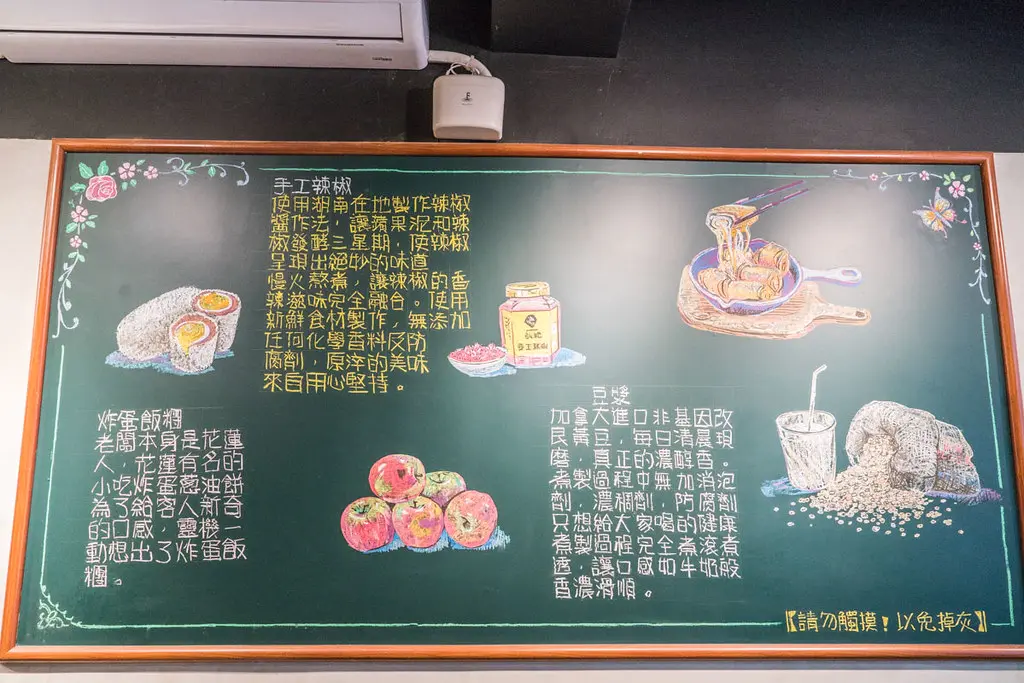 手工辣椒
使用湖南在地製作辣椒
醬作法，讓蘋果泥和辣
椒發酵三星期，使辣椒
呈現出絕妙的味道
慢火熬煮，讓辣椒的香
辣滋味完全融合。使用
新鮮食材製作，無添加
任何化學香料反防
腐劑，原淬的美味
來自用心堅持。
手工辣椒
炸蛋飯糰
老闆本身是花蓮
人，花蓮有名的
小吃炸蛋蔥油餅
為了給客人新奇
的口感，靈機一
動想出了炸蛋飯
糰。
豆漿
加拿大進口非基因改
良黃豆，每日清晨現
磨，真正的濃醇香。
煮製過程中無加消泡
劑，濃稠劑，防腐劑
只想給大家喝的健康
煮製過程完全煮滾煮
透，讓口感如牛奶般
香濃滑順。
【請勿觸摸！以免掉灰】